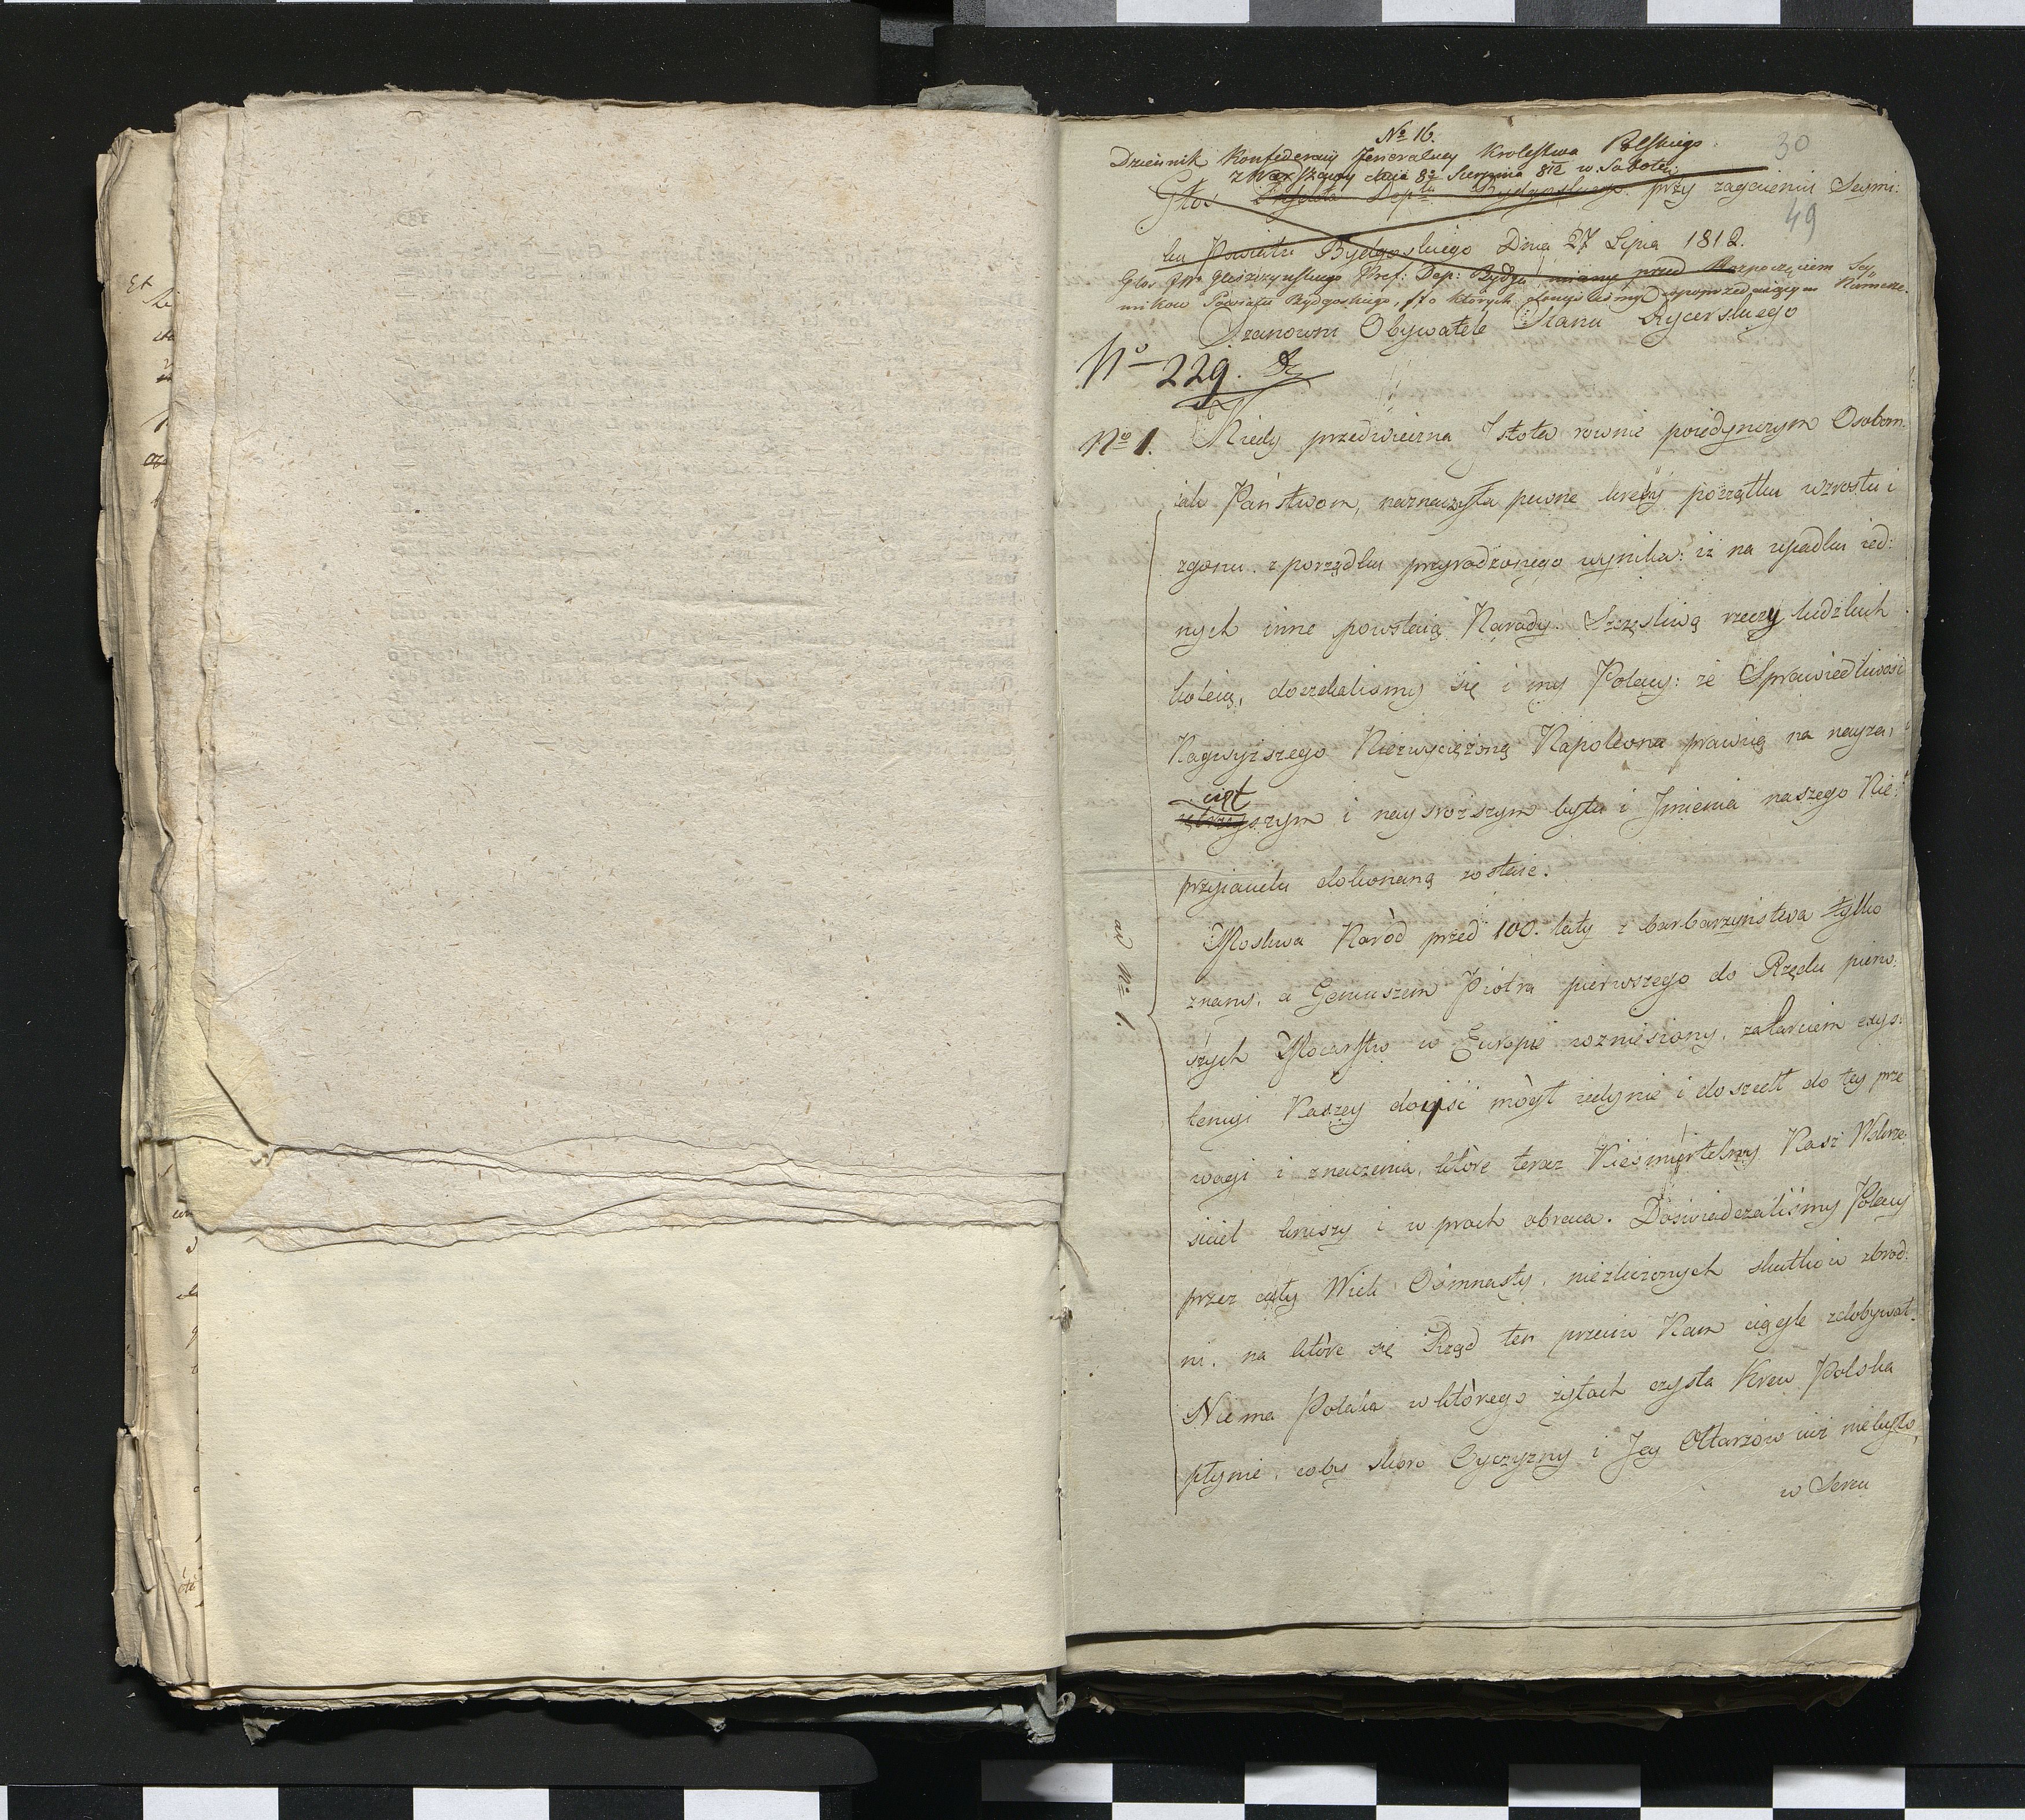 № 16.
Dziennik Konfederacyi Jeneralney Krolestwa Polskiego
30
z Warszawy dnia 8º Sierpnia 812 w Sobotę
Głos Prefekta Deptu Bydgoskiego przy zagaieniu Seymi:
49
ku Powiatu Bydgoskiego Dnia 27 Lipca 1812.
Głos JW Gliszczynskiego Pref: Dep: Bydgo: miany przed Rozpoczęciem Sey
mikow Powiatu Bydgoskiego, o ktorych
Szanowni Obywatele Stanu Rycerskiego
Nº 229.
Nº 1. Kiedy przedwieczna Istota rownie poiedynczym Osobom
iak Państwom, naznaczyła pewne kresy początku wzrostu i
zgonu. z porządku przyrodzonego wynika: iż na upadku ied:
nych inne powstaią Narody. Szczęsliwą rzeczy ludzkich
koleią, doczekalismy się i my Polacy: że Sprawiedliwość
Naywyższego Niezwyciężoną Napoleona prawicą na nayza,
cięt
szym i naysroższym bytu i Jmienia naszego Nie:
przyiacielu dokonaną zostaie.
Moskwa Naród przed 100. laty z barbarzyństwa tylko
znany, a Geniuszem Piotra pierwszego do Rzędu pierw:
szych Mocarstw w Europie wzniesiony, zatarciem exys:
tencyi Naszey doyść mógł iedynie i doszedł do tey prze
wagi i znaczenia, które teraz Nieśmiertelny Nasz Wskrze
siciel kruszy i w proch obraca. Doświadczaliśmy Polacy
przez cały Wiek Ośmnasty, niezliczonych skutków zbrod:
ni, na które się Rząd ten przeciw Nam ciągle zdobywał.
Niema Polaka w którego żyłach czysta Krew Polska
płynie, coby skoro Oyczyzny i Jey Ołtarzów iuż niebyło,
w Sercu
ad Nº 1.